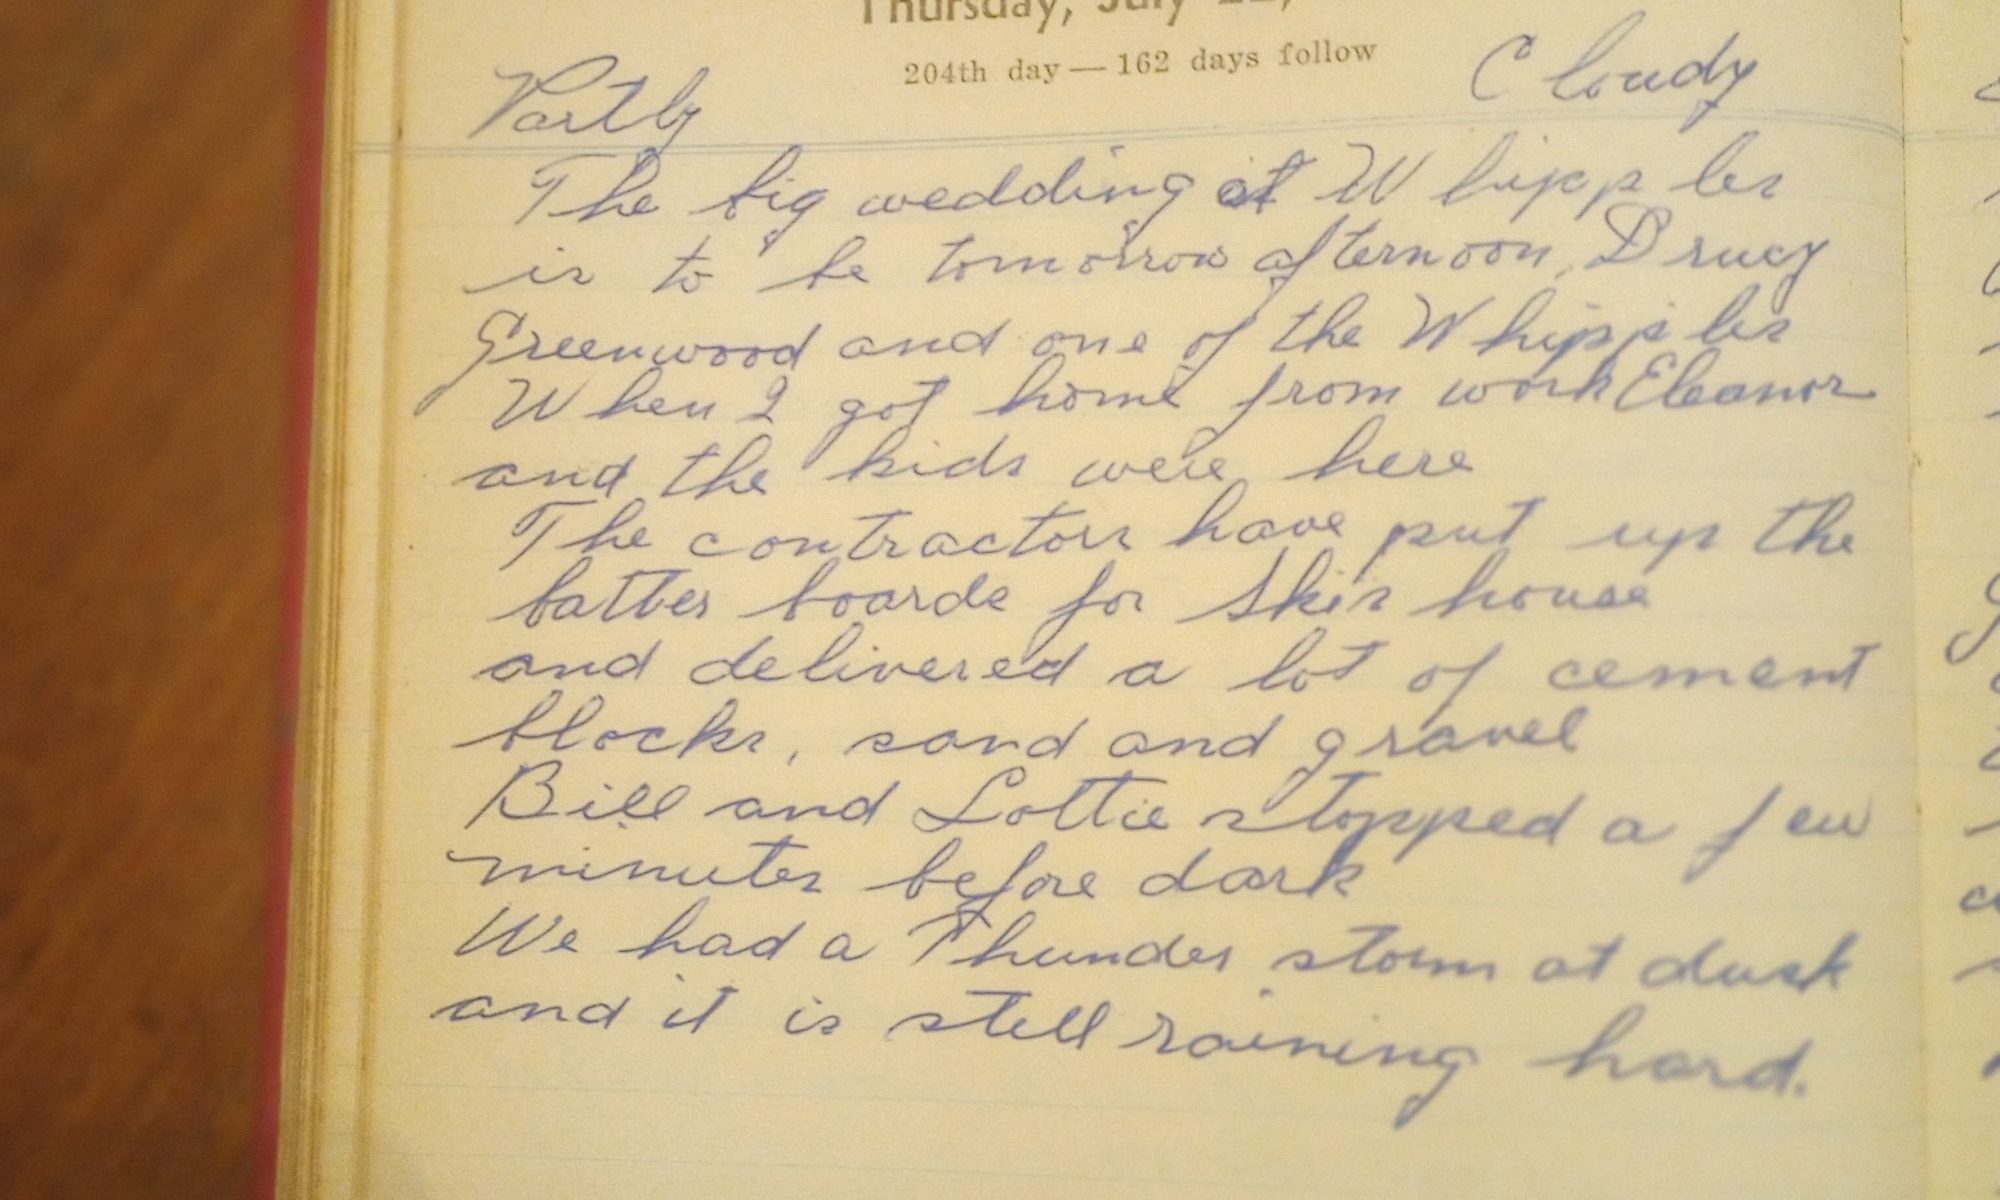 Thursday, July 22,
204th day — 162 days follow
Partly Cloudy
The big wedding at Whipples
is to be tomorrow afternoon, Drucy
Greenwood and one of the Whipples
When I got home from work Eleanor
and the kids were here
The contractors have put up the
batter boards for Skis house
and delivered a lot of cement
blocks, sand and gravel
Bill and Lottie stopped a few
minutes before dark
We had a Thunder storm at dusk
and it is still raining hard.